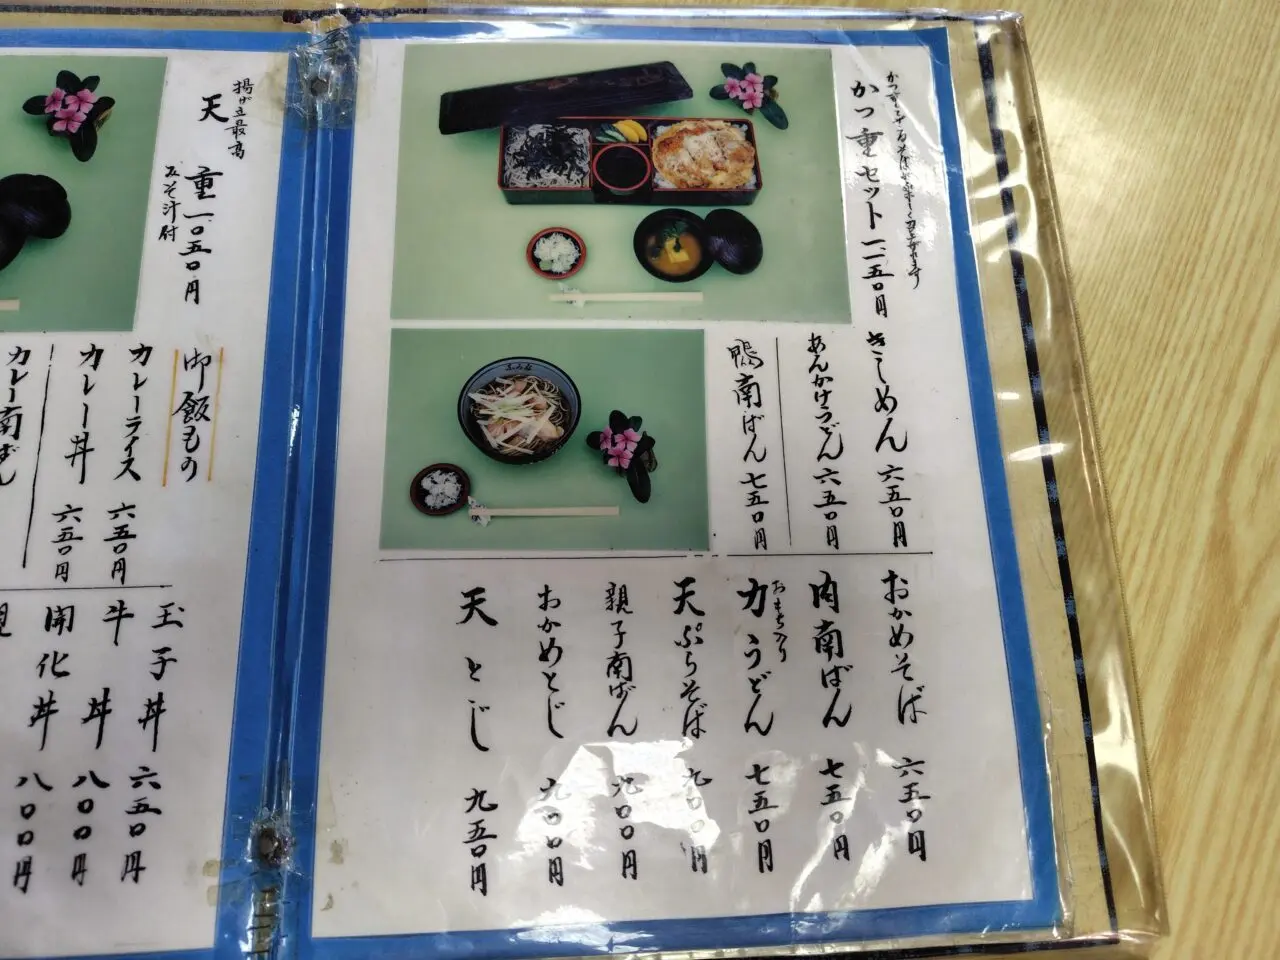 かつ重セット 一、一五〇円
きしめん 六五〇円
あんかけうどん 六五〇円
鴨南ばん 七五〇円
おかめそば 六五〇円
肉南ばん 七五〇円
おもち入り
力うどん 七五〇円
天ぷらそば 九〇〇円
親子南ばん 九〇〇円
おかめとじ 九〇〇円
天とじ 九五〇円
揚げ立最高
天重 一、〇五〇円
みそ汁付
御飯もの
カレーライス 六五〇円
カレー丼 六五〇円
カレー南ばん
玉子丼 六五〇円
牛丼 八〇〇円
開化丼 八〇〇円
親